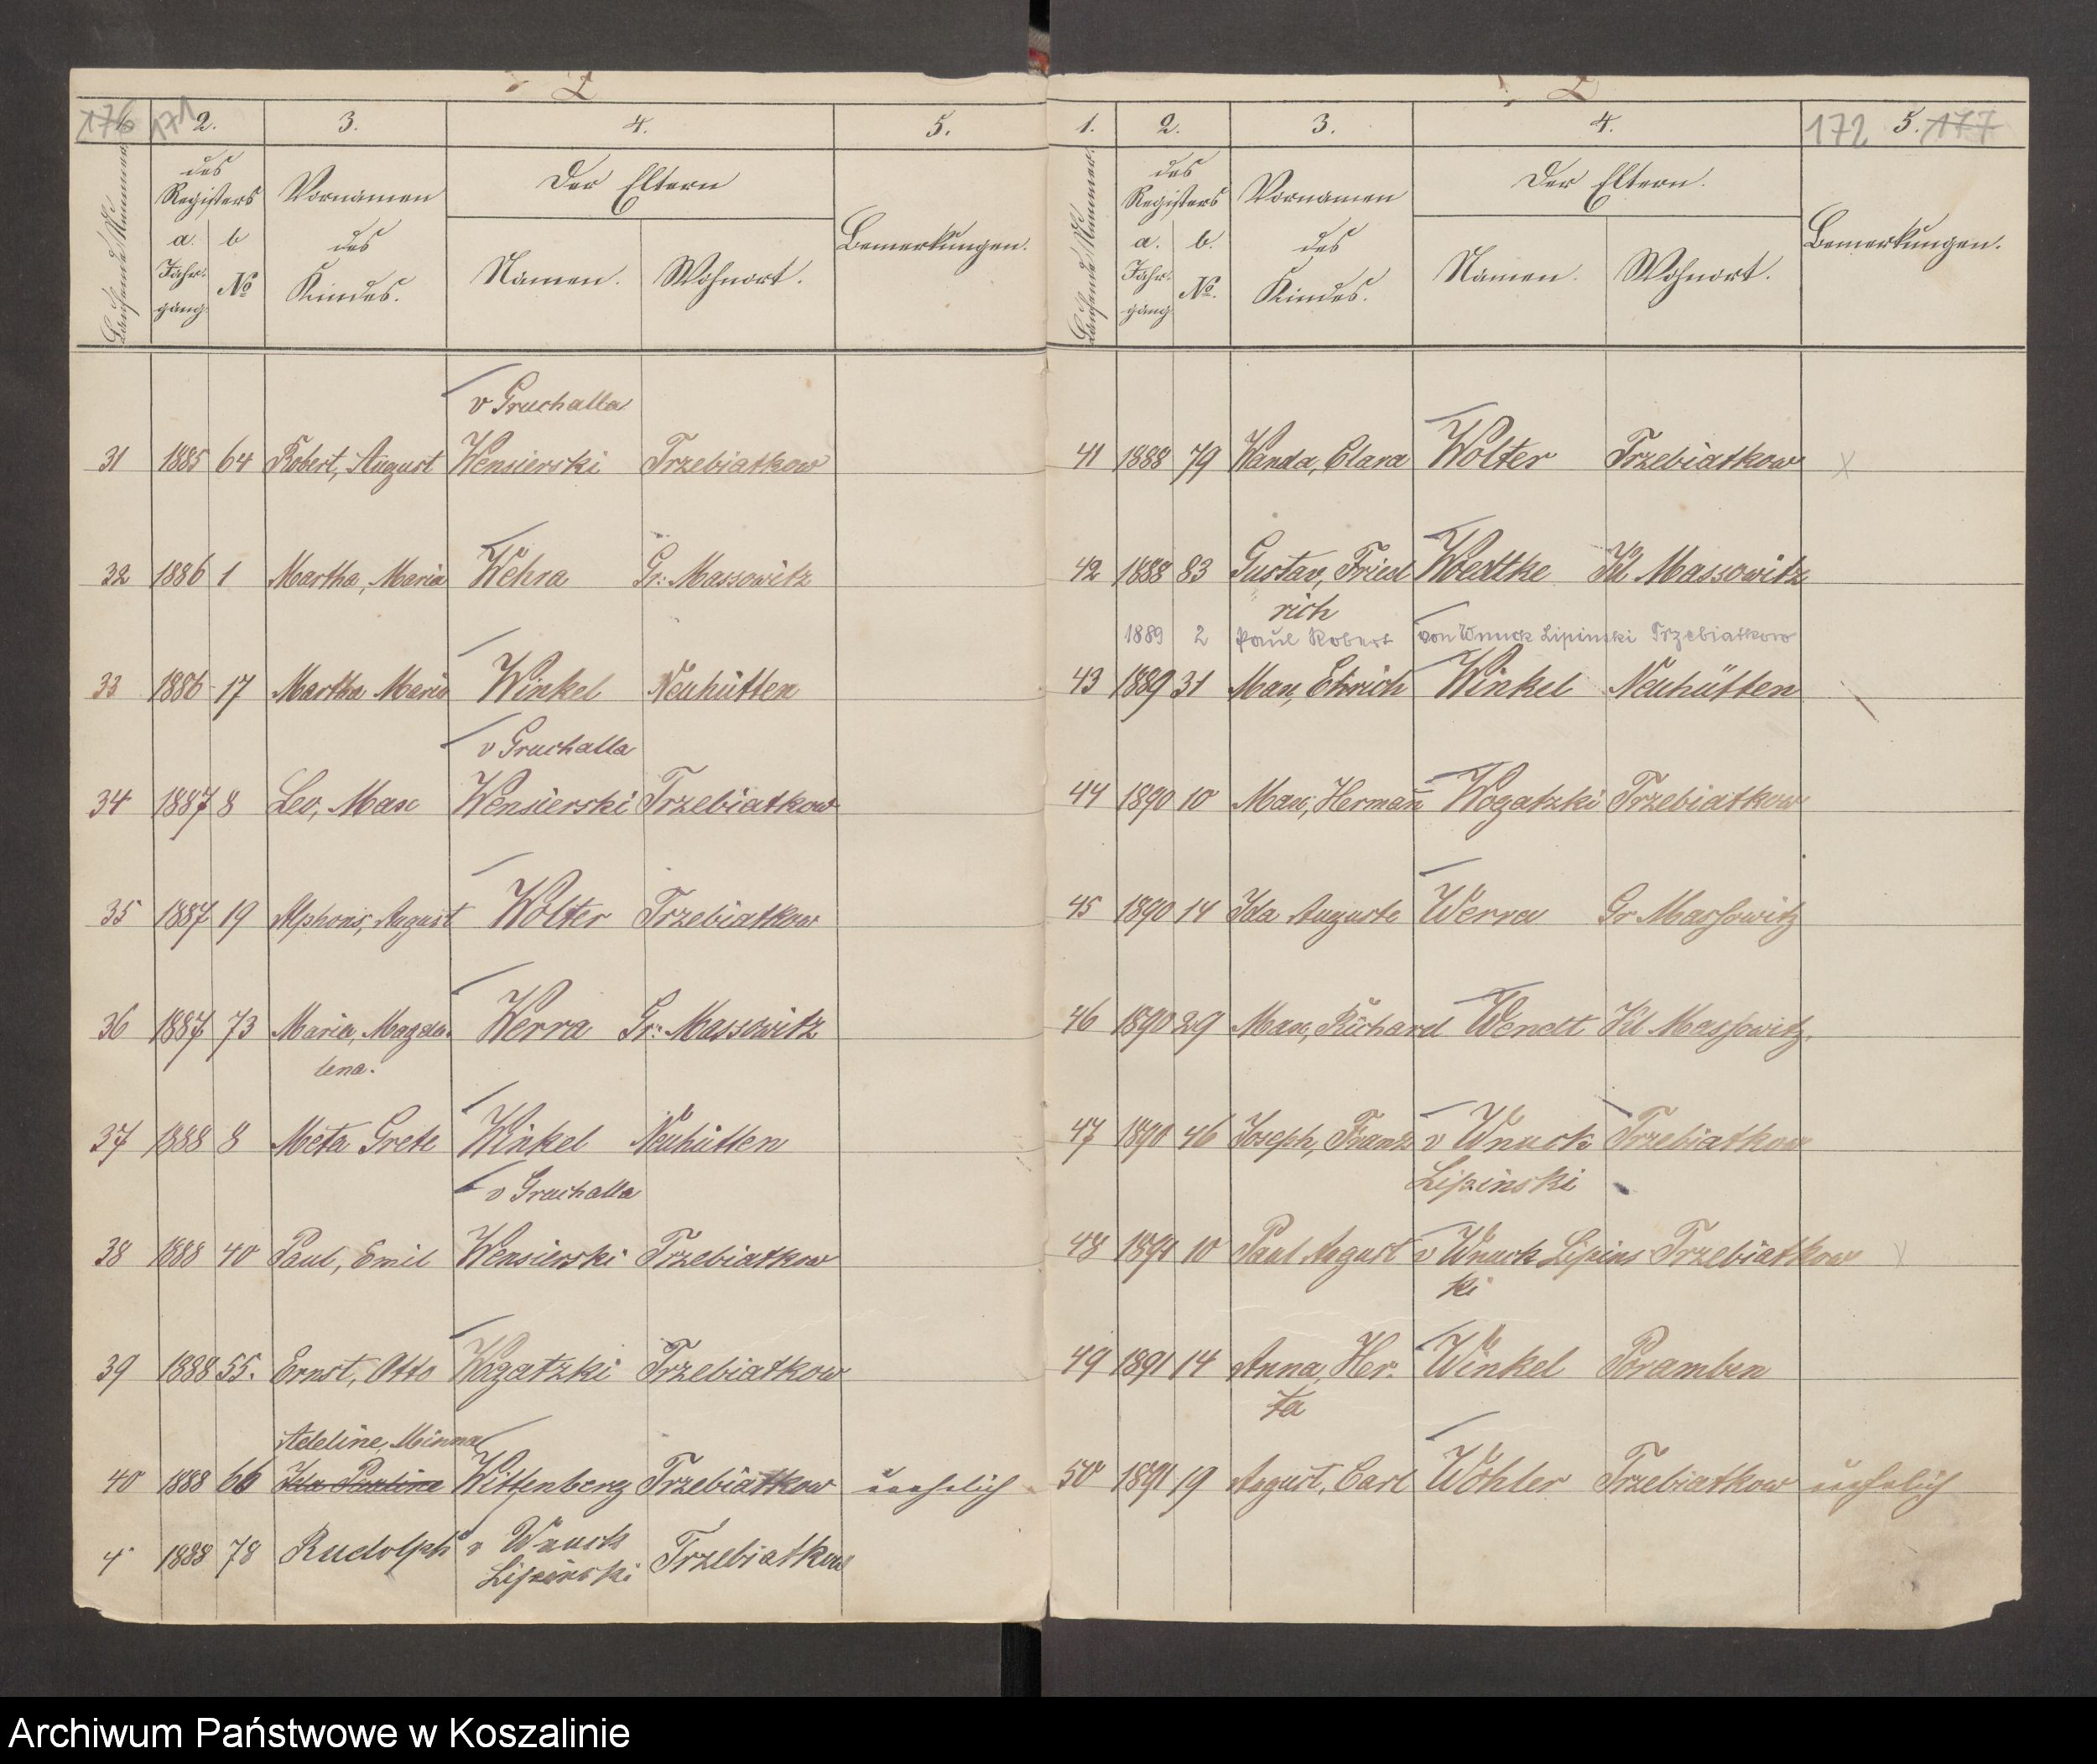 176 171
1. 2. 3. 4. 5.
Laufende Nummer
des Registers
Vornamen des Kindes.
Der Eltern
Bemerkungen.
a. Jahrgang b No
Namen. Wohnort.
v Gruchalla
31 1885 64 Robert, August Wensierski Trzebiatkow
32 1886 1 Martha, Maria Wehra Gr: Massowitz
33 1886 17 Martha Maria Winkel Neuhütten
v Gruchalla
34 1887 8 Leo, Max Wensierski Trzebiatkow
35 1887 19 Alphons, August Wolter Trzebiatkow
36 1887 73 Maria, Magda- Werra Gr: Massowitz
lena.
37 1888 8 Meta Grete Winkel Neuhütten
v Gruchalla
38 1888 40 Paul, Emil Wensierski Trzebiatkow
39 1888 55. Ernst, Otto Wogatzki Trzebiatkow
Adeline, Minna
40 1888 66 Ida Pauline Wittenberg Trzebiatkow unehelich
1888 78 Rudolph v Wnuck Trzebiatkow
Lipinski
172 177
1. 2. 3. 4. 5.
Laufende Nummer.
des Registers
Vornamen des Kindes.
Der Eltern.
Bemerkungen.
a. Jahrgang b. No.
Namen. Wohnort.
41 1888 79 Wanda, Clara Wolter Trzebiatkow x
42 1888 83 Gustav, Fried Woedtke Kl. Massowitz
rich
1889 2 Paul Robert von Wnuck Lipinski Trzebiatkow
43 1889 31 Max, Ehrich Winkel Neuhütten
44 1890 10 Max, Hermañ Wogatzki Trzebiatkow
45 1890 14 Ida Auguste Werra Gr Massowitz
46 1890 29 Max, Richard Wendt Kl Massowitz.
47 1890 46 Joseph, Franz v Wnuck Trzebiatkow
Lipinski
48 1891 10 Paul August v Wnuck Lipins Trzebiatkow
ki
49 1891 14 Anna, Her- Winkel Poramben
ta
50 1891 19 August, Carl Wöhler Trzebiatkow unehelich
Archiwum Państwowe w Koszalinie